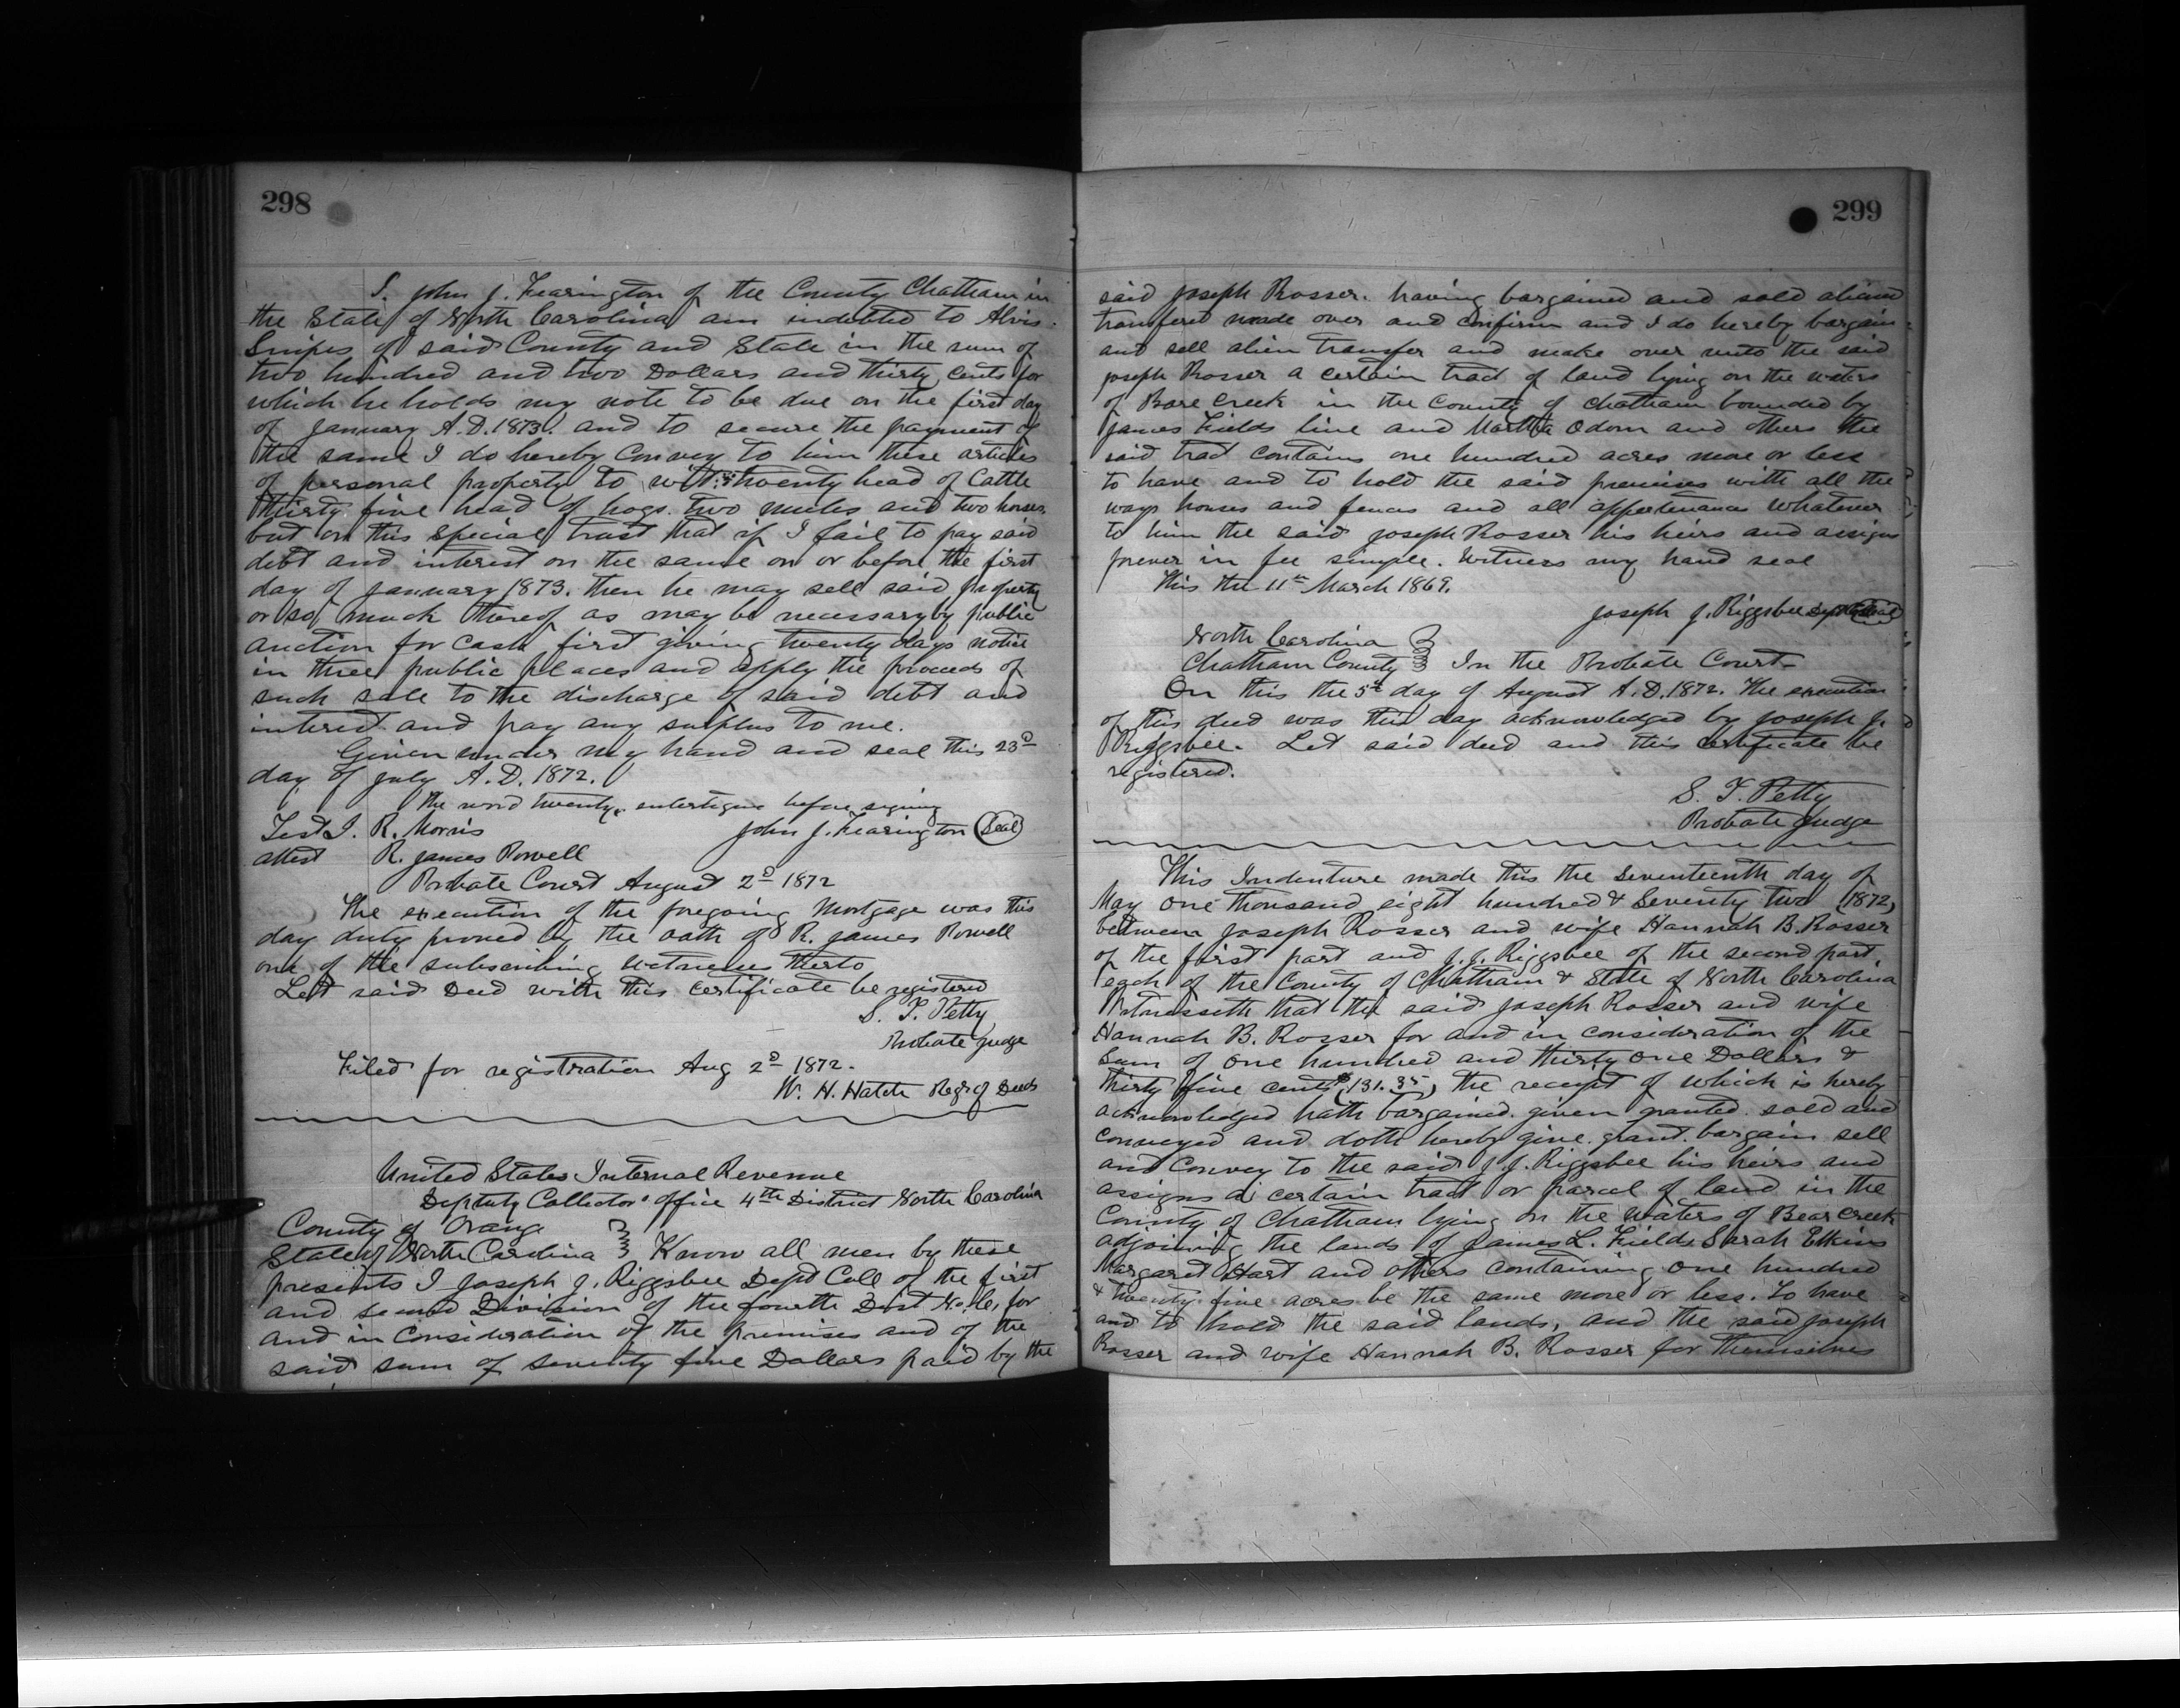 298
I, John J. Fearington of the County Chatham in
the State of North Carolina am indebted to Alvis
Snipes of said County and State in the sum of
two hundred and two Dollars and thirty cents for
which he holds my note to be due on the first day
of January A.D. 1873. and to secure the payment of
the same I do hereby Convey to him these articles
of personal property to wit: twenty head of Cattle
thirty five head of hogs. two mules and two horses.
but on this special trust that if I fail to pay said
debt and interest on the same on or before the first
day of January 1873. then he may sell said property
or so much thereof as may be necessary by public
auction for cash first giving twenty days notice
in three public places and apply the proceeds of
such sale to the discharge of said debt and
interest and pay any surplus to me.
Given under my hand and seal this 23d
day of July A.D. 1872.
the word twenty, before signing
Test J. R. Morris John J. Fearington (Seal)
attest R. James Powell
Probate Court August 2d 1872
The execution of the foregoing Mortgage was this
day duly proved by the oath of R. James Powell
one of the subscribing witnesses therto
Let said Deed with this certificate be registered
S. T. Petty
Probate Judge
Filed for registration Aug 2d 1872.
W. H. Hatch Regr of Deeds
United States Internal Revenue
Deptuty Collector's office 4th District North Carolina
County of Orange
State of North Carolina } Know all men by these
presents I Joseph J. Riggsbee Dept Coll of the first
and second Division of the fourth Dist N.C. for
and in Consideration of the premises and of the
said sum of seventy five Dollars paid by the
299
said Joseph Rosser. having bargained and sold aliened
transfered made over and confirm and I do hereby bargain
and sell alien transfer and make over unto the said
Joseph Rosser a certain tract of land lying on the waters
of Bare Creek in the County of Chatham bounded by
James Fields line and Martha Odom and others the
said tract contains one hundred acres more or less
to have and to hold the said premises with all the
ways houses and fences and all appertenances whatever
to him the said Joseph Rosser his heirs and assigns
forever in fee simple. Witness my hand seal
This the 11th March 1869.
Joseph J. Riggsbee (Seal)
North Carolina }
Chatham County } In the Probate Court
On this the 5th day of August A.D. 1872. The execution
of this deed was this day acknowledged by Joseph J.
Riggsbee. Let said deed and this certificate be
registered.
S. T. Petty
Probate Judge
This Indenture made this the Seventeenth day of
May one thousand eight hundred & Seventy two (1872)
between Joseph Rosser and wife Hannah B. Rosser
of the first part and J. J. Riggsbee of the second part,
each of the County of Chatham & State of North Carolina
Witnesseth that the said Joseph Rosser and wife
Hannah B. Rosser for and in consideration of the
Sum of one hundred and thirty one Dollars &
thirty five cents ($131.35) the receipt of which is hereby
acknowledged hath bargained. given granted. sold and
conveyed and doth hereby give. grant. bargain sell
and Convey to the said J. J. Riggsbee his heirs and
assigns a certain tract or parcel of land in the
County of Chatham lying on the waters of Bear Creek
adjoining the lands of James L. Fields Sarah Elkins
Margaret Hart and others containing one hundred
& twenty five acres be the same more or less. To have
and to hold the said lands, and the said Joseph
Rosser and wife Hannah B. Rosser for themselves